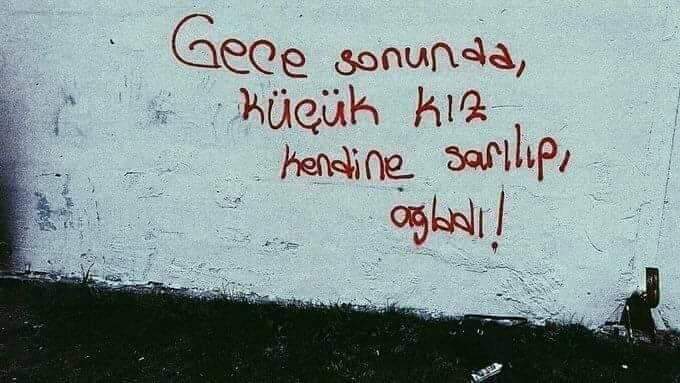 Gece sonunda,
küçük kız
kendine sarılıp,
ağladı!